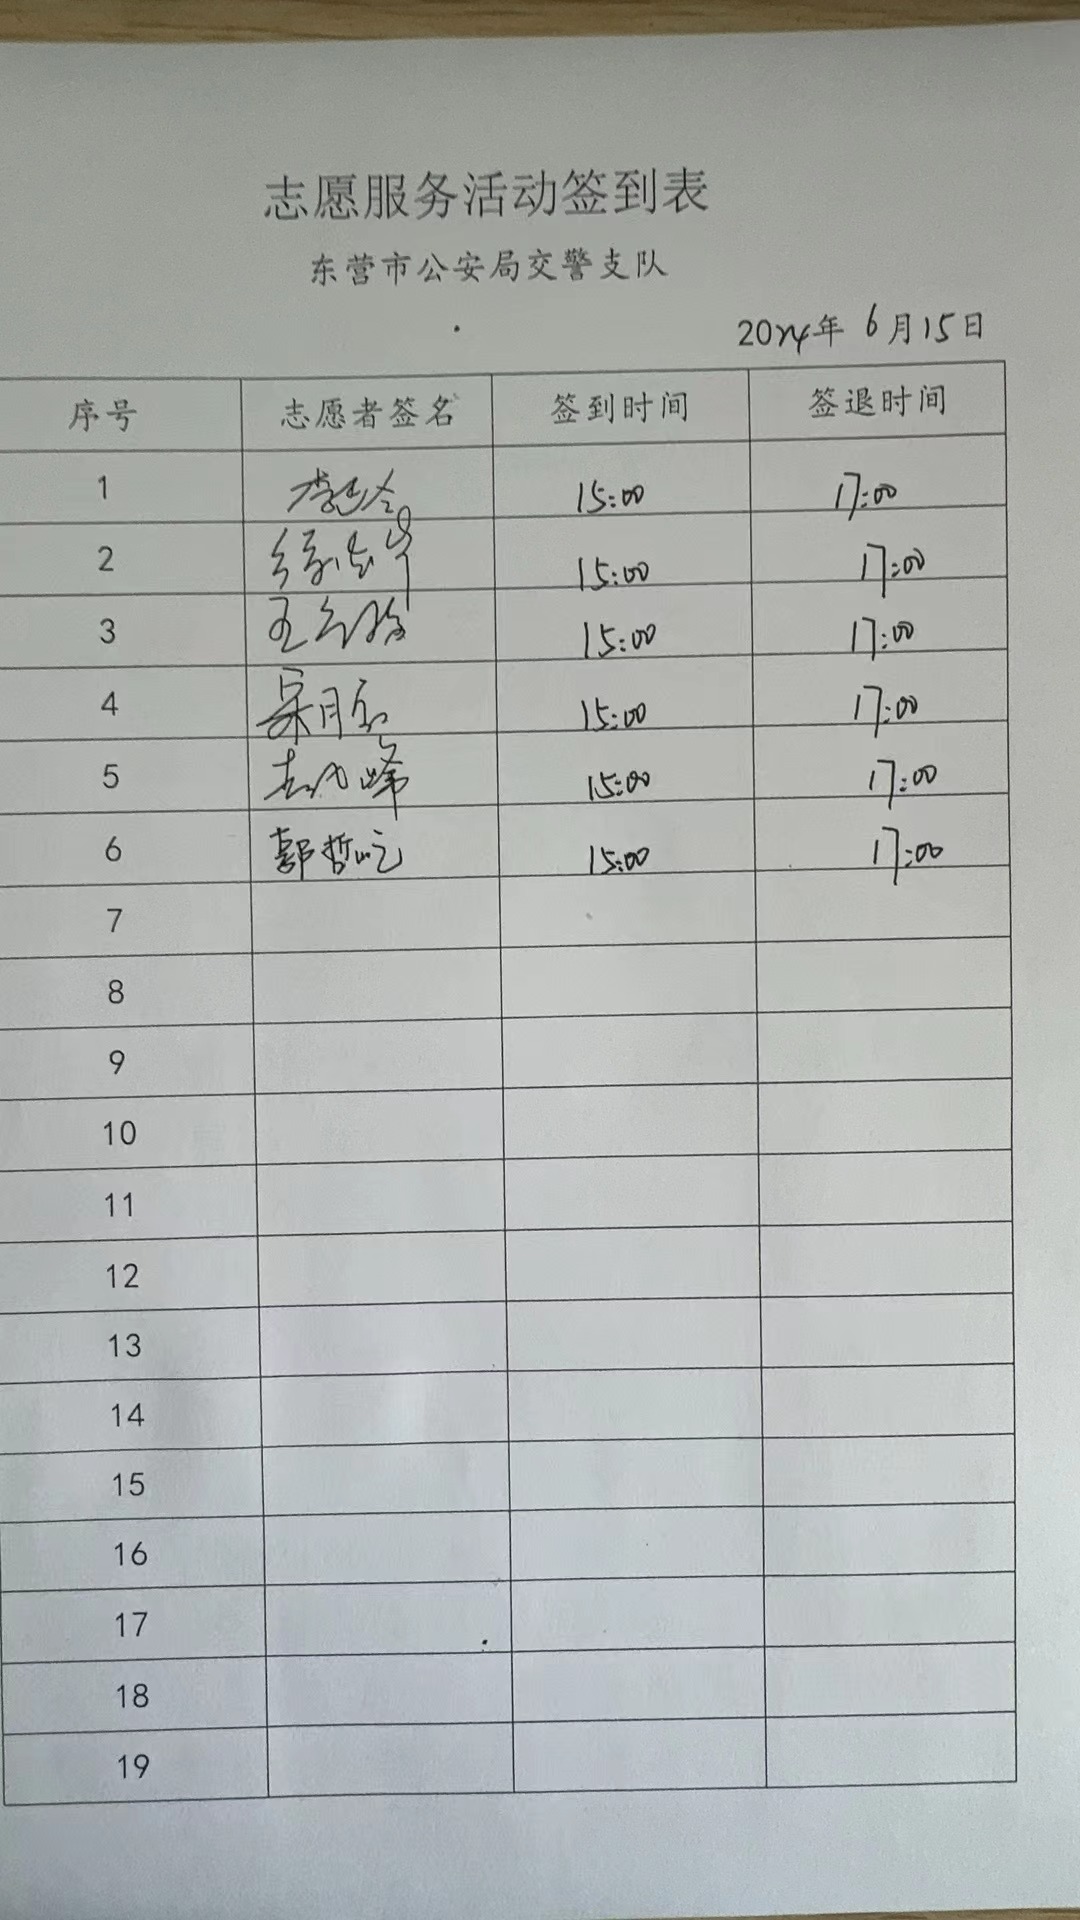 志愿服务活动签到表
东营市公安局交警支队
2024年 6月15日
序号 志愿者签名 签到时间 签退时间
1 15:00 17:00
2 15:00 17:00
3 王 15:00 17:00
4 15:00 17:00
5 峰 15:00 17:00
6 郭哲屹 15:00 17:00
7
8
9
10
11
12
13
14
15
16
17
18
19